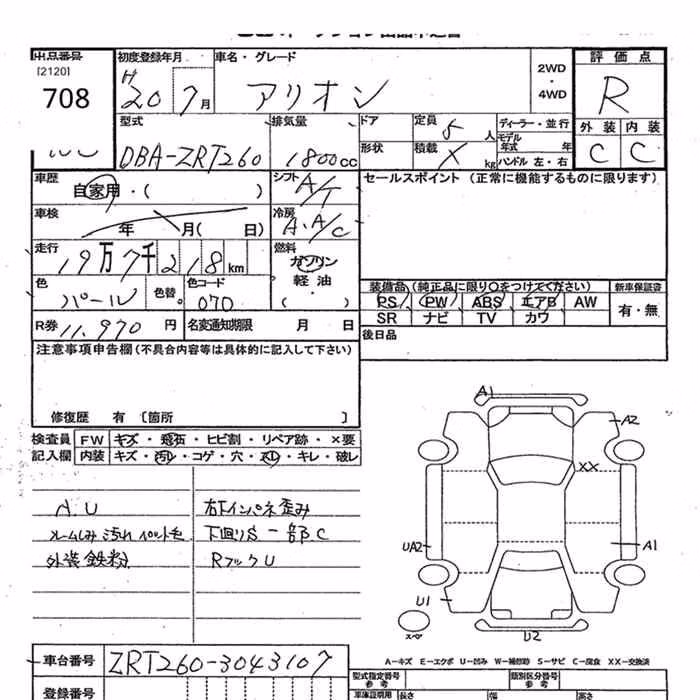 出品番号 初度登録年月 車名・グレード 評価点
[2120]
708
H 20 7月 アリオン 2WD・4WD R
型式 排気量 ドア 定員 5人 ディーラー・並行 外装 内装
DBA-ZRT260 1800cc 形状 積載 X kg モデル年式 年 C C
ハンドル 左・右
車歴 自家用・( ) シフト A/T セールスポイント (正常に機能するものに限ります)
車検 年 月( 日) 冷房 A.A/C
走行 19万7千218km 燃料 ガソリン
軽油
・( )
色 パール 色替 色コード 070 装備品(純正品に限り○をつけてください) 新車保証書
PS PW ABS エアB AW 有・無
SR ナビ TV カワ
R券 11,970円 名変通知期限 月 日 後日品
注意事項申告欄(不具合内容等は具体的に記入して下さい)
修復歴 有 [箇所 ]
検査員 FW キズ・飛石・ヒビ割・リペア跡・×要
記入欄 内装 キズ・汚れ・コゲ・穴・スレ・キレ・破レ
A.U 右下インパネ歪み
ルームしみ 汚れ ペット毛 下回りS 一部C
外装 鉄粉 RフックU
A1
A2
XX
UA2
A1
U1
スペア
U2
A-キズ E-エクボ U-凹み W-補修跡 S-サビ C-腐食 XX-交換済
車台番号 ZRT260-3043107
型式指定番号 参考 類別区分番号 参考
登録番号 車庫証明用 長さ 幅 高さ